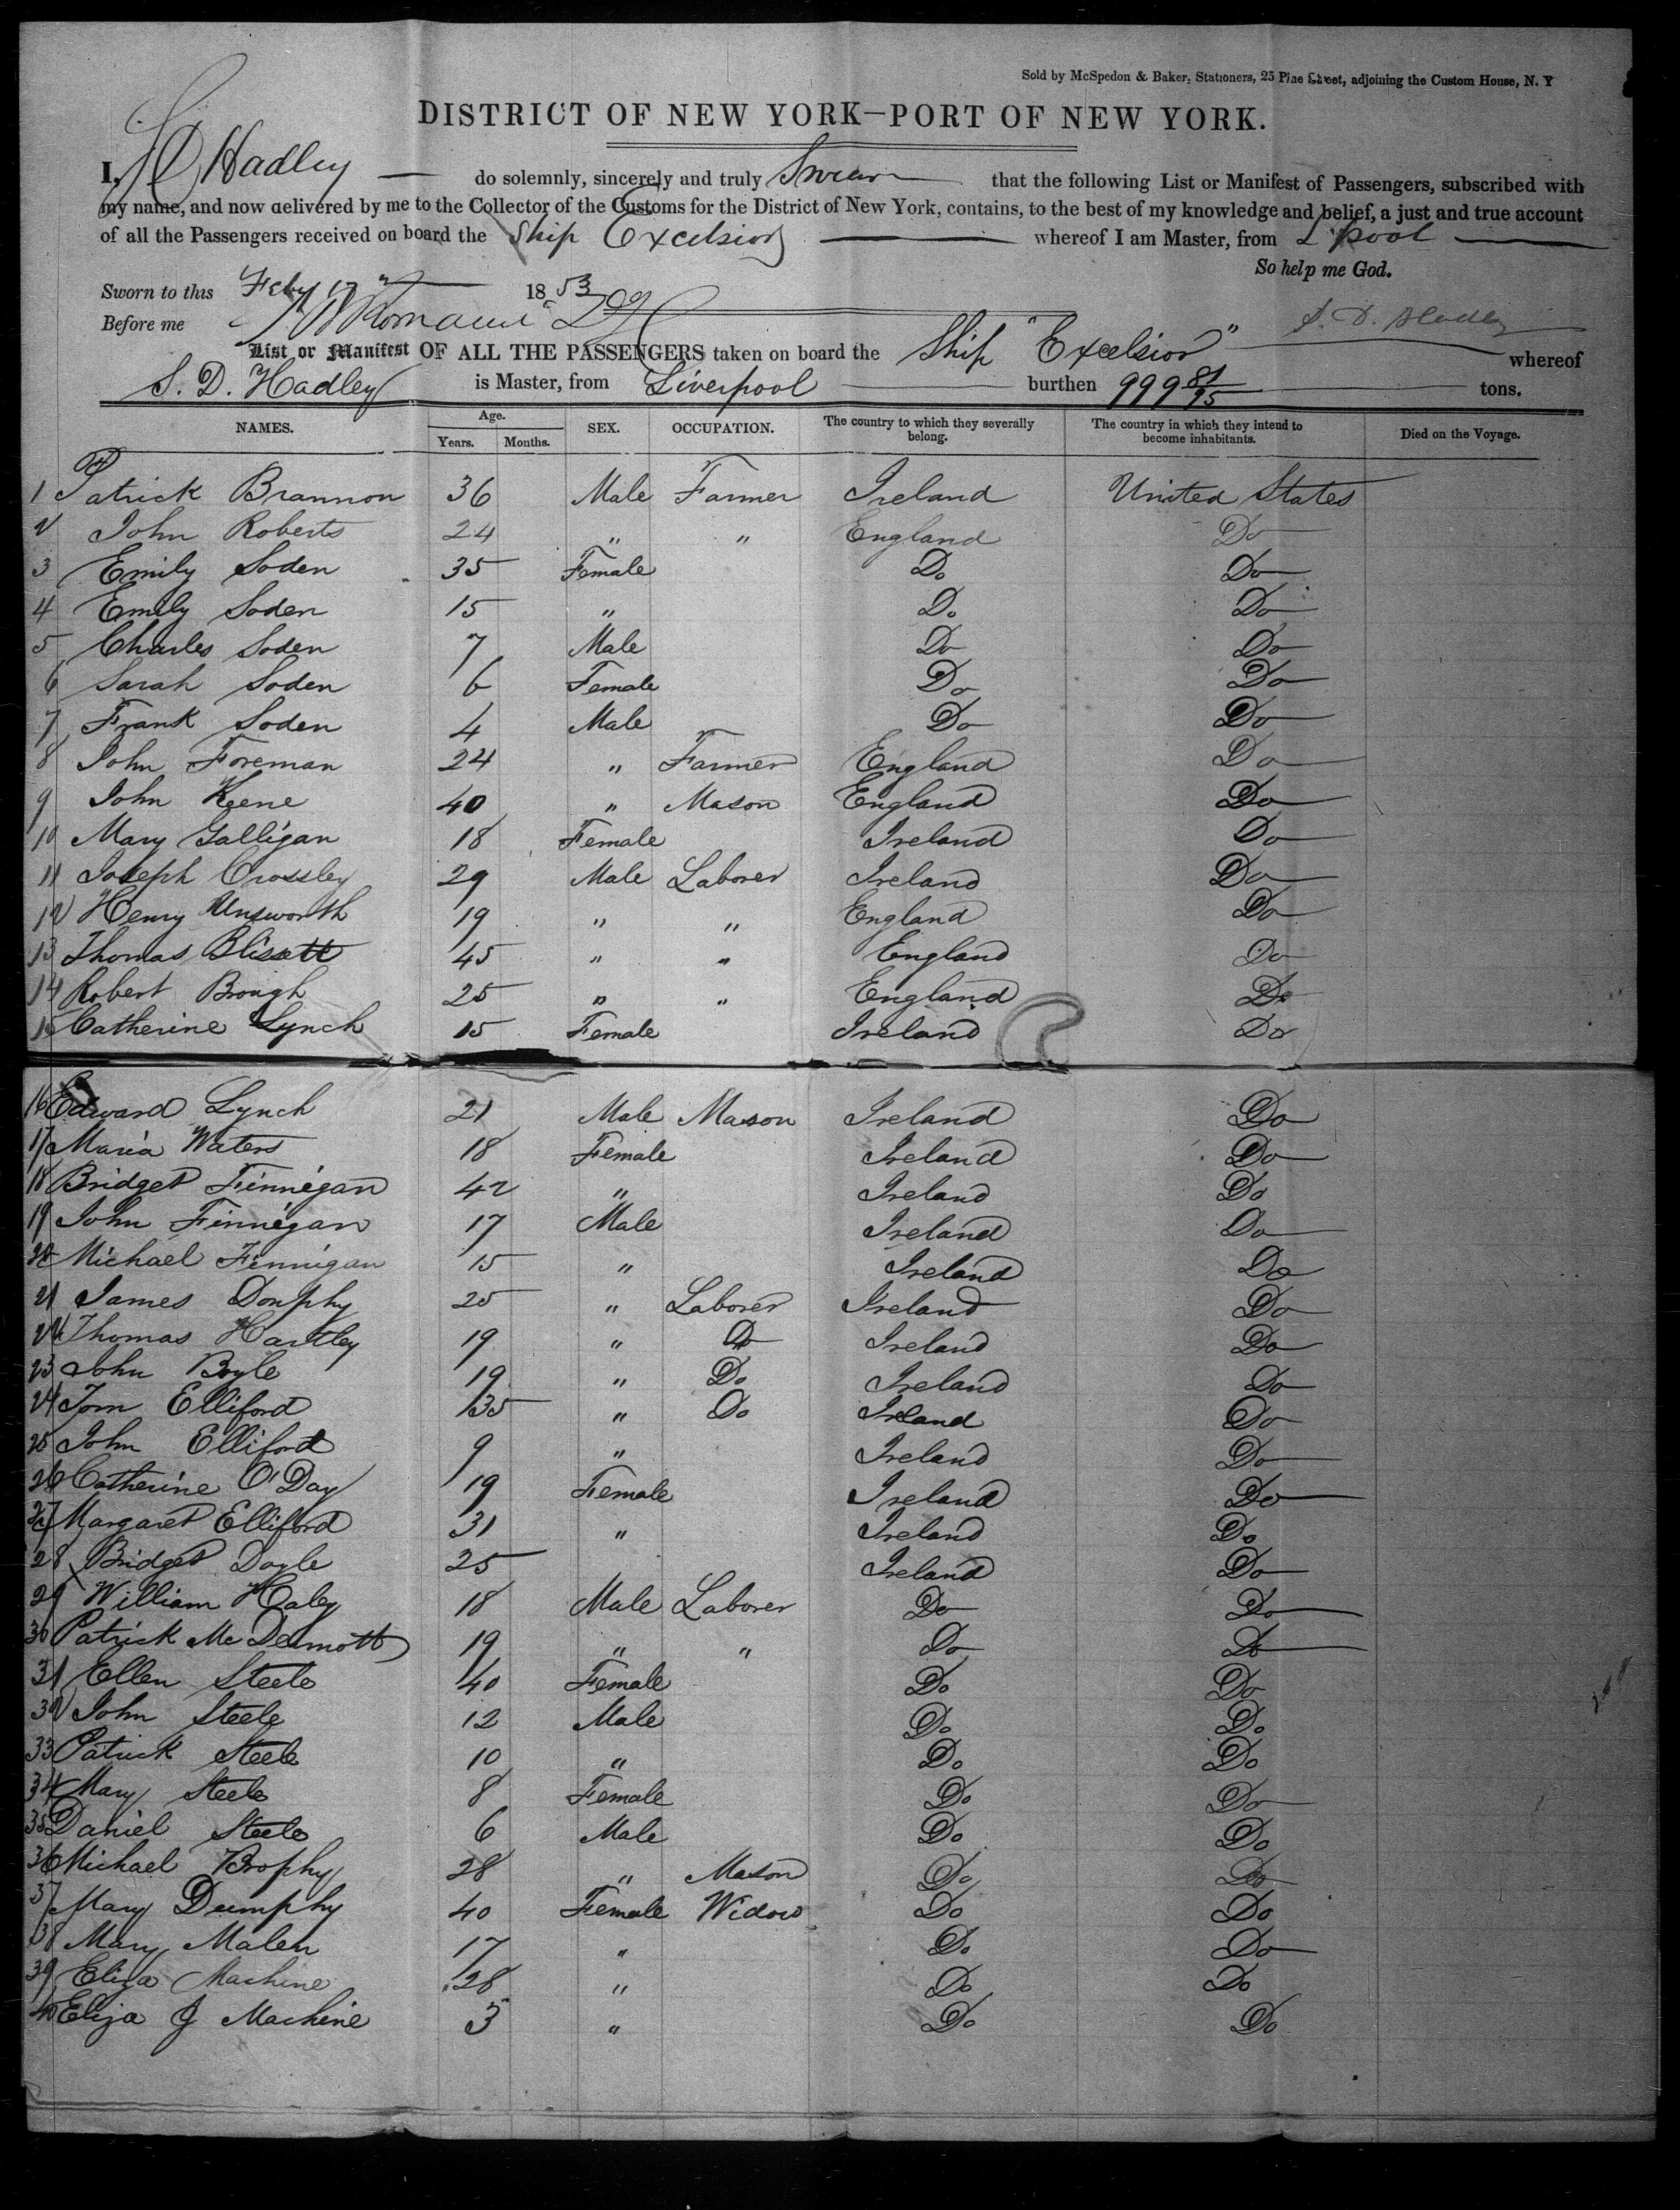 Sold by McSpedon & Baker, Stationers, 25 Pine Street, adjoining the Custom House, N. Y
DISTRICT OF NEW YORK—PORT OF NEW YORK.
I, S D Hadley — do solemnly, sincerely and truly Swear that the following List or Manifest of Passengers, subscribed with
my name, and now delivered by me to the Collector of the Customs for the District of New York, contains, to the best of my knowledge and belief, a just and true account
of all the Passengers received on board the Ship Excelsior — whereof I am Master, from L pool —
So help me God.
Sworn to this Feby 17 1853
Before me S. D. Hadley
List or Manifest OF ALL THE PASSENGERS taken on board the Ship "Excelsior" whereof
S. D. Hadley is Master, from Liverpool burthen 999 81/95 tons.
NAMES. Age. Years. Months. SEX. OCCUPATION. The country to which they severally belong. The country in which they intend to become inhabitants. Died on the Voyage.
1 Patrick Brannon 36 Male Farmer Ireland United States
2 John Roberts 24 " " England Do
3 Emily Soden 35 Female Do Do
4 Emily Soden 15 " Do Do
5 Charles Soden 7 Male Do Do
6 Sarah Soden 6 Female Do Do
7 Frank Soden 4 Male Do Do
8 John Foreman 24 " Farmer England Do
9 John Keene 40 " Mason England Do
10 Mary Galligan 18 Female Ireland Do
11 Joseph Crossley 29 Male Laborer Ireland Do
12 Henry Unsworth 19 " " England Do
13 Thomas Blisett 45 " " England Do
14 Robert Brough 25 " " England Do
15 Catherine Lynch 15 Female Ireland Do
16 Edward Lynch 21 Male Mason Ireland Do
17 Maria Waters 18 Female Ireland Do
18 Bridget Finnegan 42 " Ireland Do
19 John Finnegan 17 Male Ireland Do
20 Michael Finnigan 15 " Ireland Do
21 James Donphy 25 " Laborer Ireland Do
22 Thomas Hartley 19 " Do Ireland Do
23 John Boyle 19 " Do Ireland Do
24 Tom Elliford 35 " Do Ireland Do
25 John Elliford 9 " Ireland Do
26 Catherine O'Day 19 Female Ireland Do
27 Margaret Elliford 31 " Ireland Do
28 Bridget Doyle 25 Ireland Do
29 William Haley 18 Male Laborer Do Do
30 Patrick McDermott 19 " " Do Do
31 Ellen Steele 40 Female Do Do
32 John Steele 12 Male Do Do
33 Patrick Steele 10 " Do Do
34 Mary Steele 8 Female Do Do
35 Daniel Steele 6 Male Do Do
36 Michael Brophy 28 " Mason Do Do
37 Mary Dumphy 40 Female Widow Do Do
38 Mary Malen 17 " Do Do
39 Eliza Machine 28 " Do Do
40 Eliza J Machine 3 " Do Do